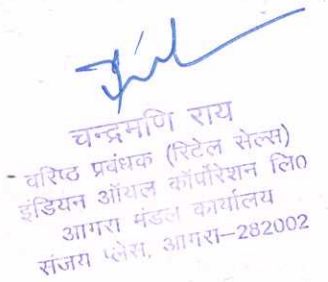 चन्द्रमणि राय
वरिष्ठ प्रवंधक (रिटेल सेल्स)
इंडियन ऑयल कॉर्पोरेशन लि०
आगरा मंडल कार्यालय
संजय प्लेस, आगरा–282002